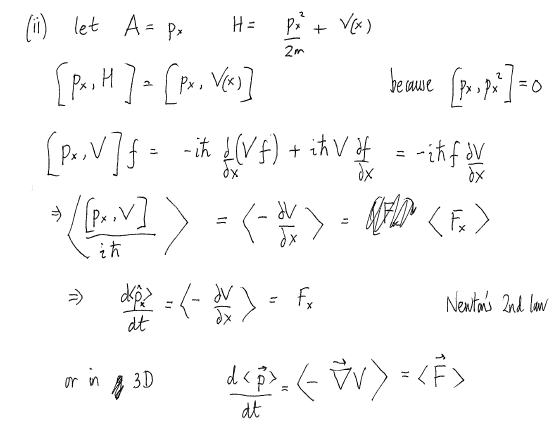 (ii) let A = pₓ H = pₓ²/2m + V(x)
[pₓ, H] = [pₓ, V(x)] because [pₓ, pₓ²] = 0
[pₓ, V] f = -iħ ∂/∂x (Vf) + iħ V ∂f/∂x = -iħ f ∂V/∂x
⇒ ⟨[pₓ, V]/iħ⟩ = ⟨-∂V/∂x⟩ = ⟨Fₓ⟩
⇒ d⟨p̂ₓ⟩/dt = ⟨-∂V/∂x⟩ = Fₓ Newton's 2nd law
or in 3D d⟨p⃗⟩/dt = ⟨-∇⃗V⟩ = ⟨F⃗⟩